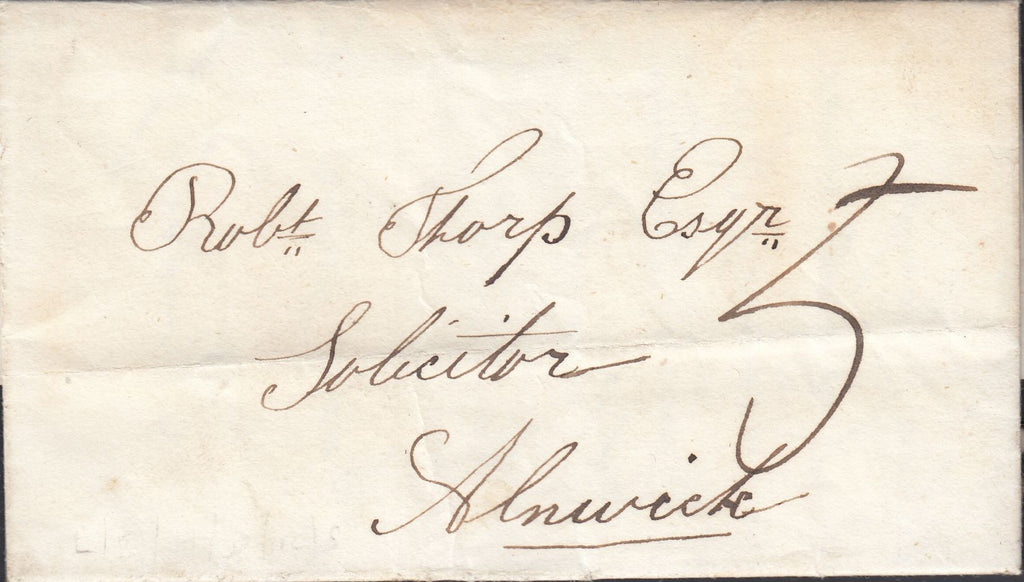 Robt Thorp Esqr 5
Solicitor
Alnwick